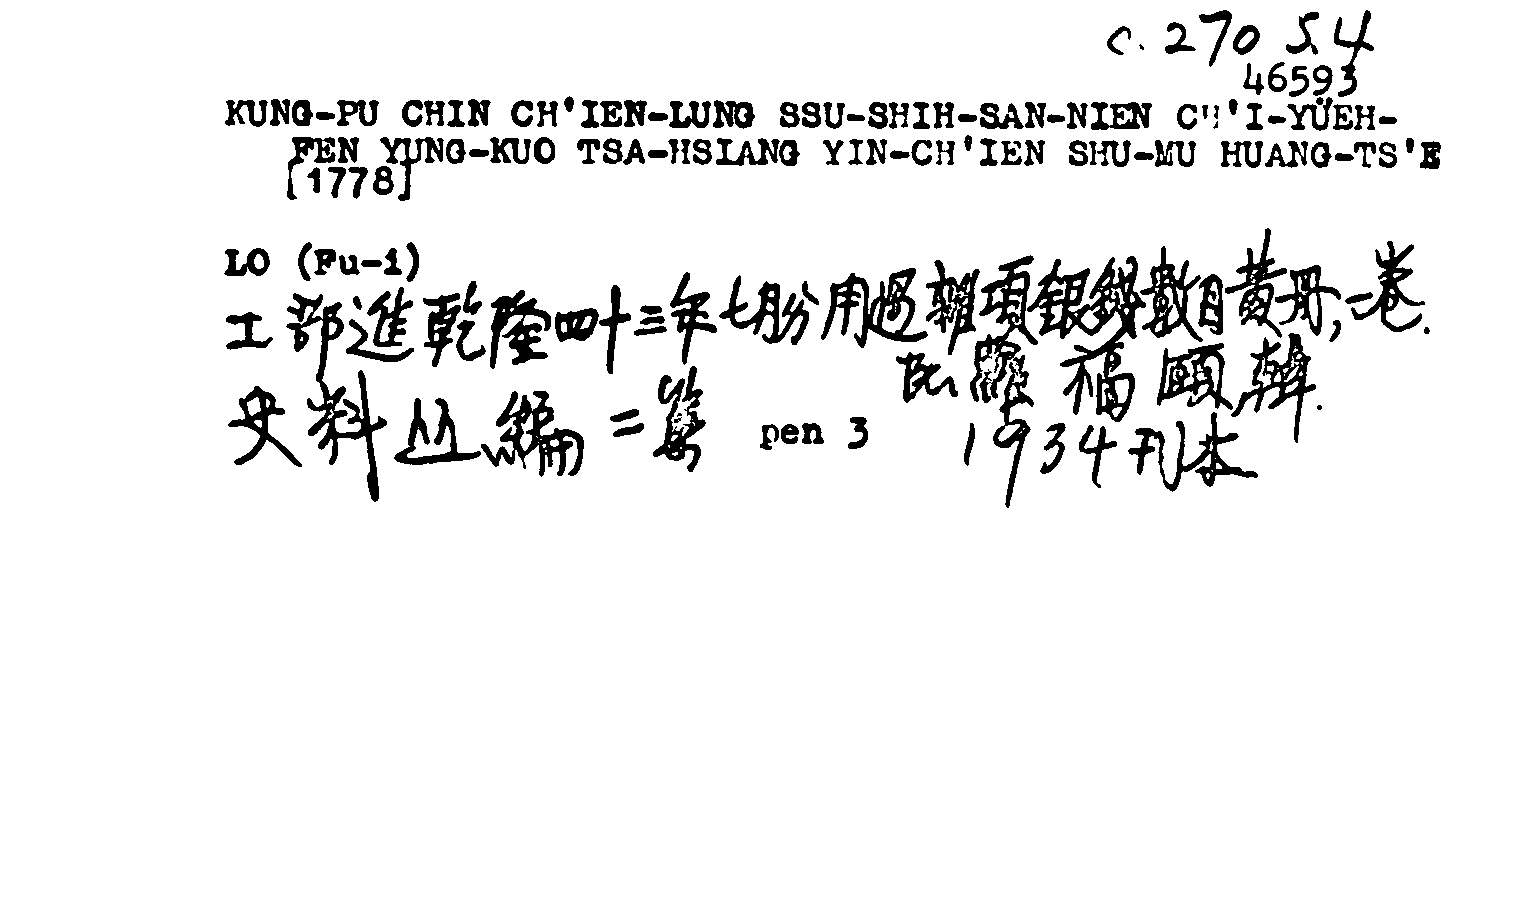 c. 270 5.4
46593
KUNG-PU CHIN CH'IEN-LUNG SSU-SHIH-SAN-NIEN CH'I-YÜEH-
FEN YUNG-KUO TSA-HSIANG YIN-CH'IEN SHU-MU HUANG-TS'E
[1778]
LO (Fu-i)
工部進乾隆四十三年七月份用過雜項銀錢數目黃册,一卷.
民 羅福頤輯.
史料丛編二集 pen 3 1934刊本